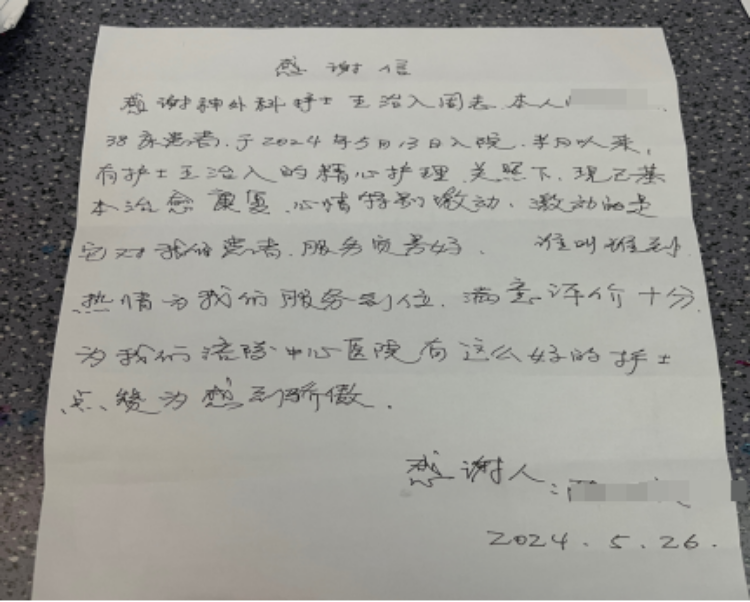 感谢信
感谢神外科护士王治入同志.本人
38床患者.于2024年5月13日入院.半月以来,
有护士王治入的精心护理.关照下.现已基
本治愈康复.心情特别激动.激动的是
它对我们患者.服务完善好. 谁叫谁到.
热情为我们服务到位.满意评价十分.
为我们涪陵中心医院有这么好的护士
点 为感到骄傲.
感谢人:
2024.5.26.